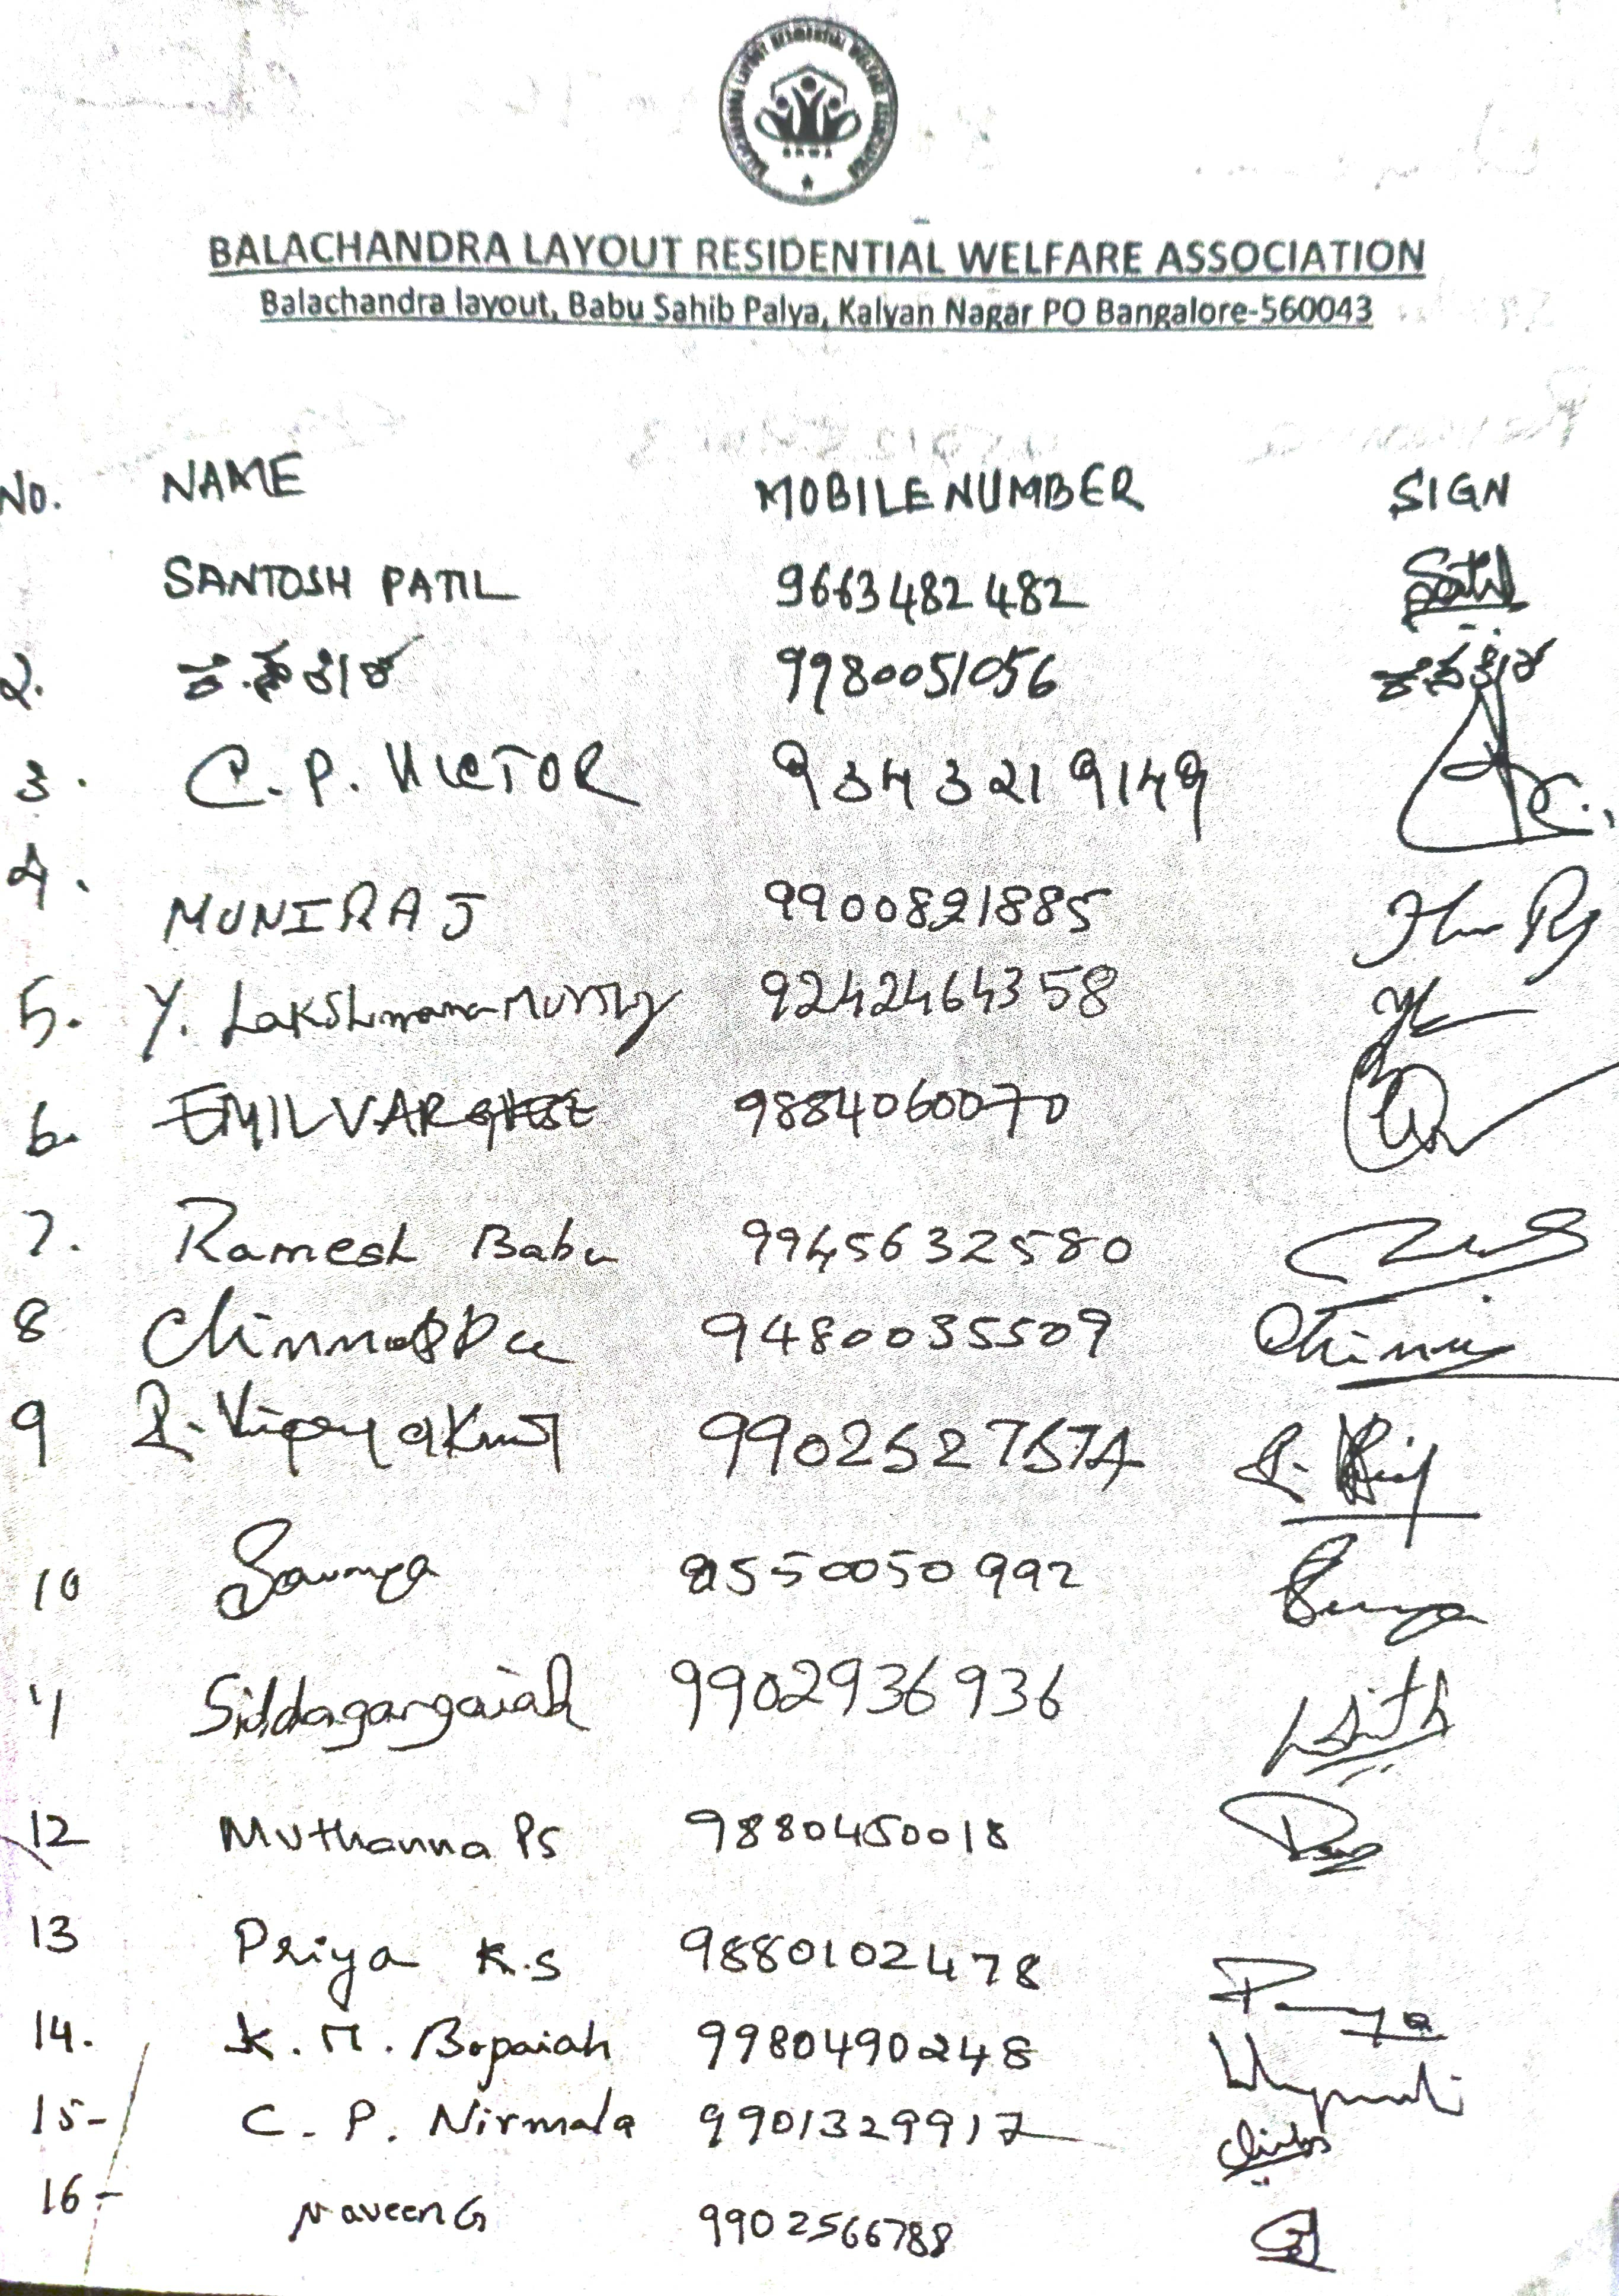 BALACHANDRA LAYOUT RESIDENTIAL WELFARE ASSOCIATION
BRWA
BALACHANDRA LAYOUT RESIDENTIAL WELFARE ASSOCIATION
Balachandra layout, Babu Sahib Palya, Kalyan Nagar PO Bangalore-560043
No. NAME MOBILE NUMBER SIGN
SANTOSH PATIL 9663482482
2. 9980051056
3. C. P. VICTOR 9343219149
4. MUNIRAJ 9900821885
5. Y. Lakshmana Murthy 9242464358
6. EMIL VARGHESE 9884060070
7. Ramesh Babu 9945632580
8 Chinnappa 9480035509
9 R. Vijayakumar
10 Sowmya 9550050992
11 Siddagangaiah 9902936936
12 Muthanna PS 9880450018
13 Priya K.S 9880102478 Priya
14. K. M. Bopaiah 9980490248
15- C. P. Nirmala 9901329917
16- Naveen G 9902566788